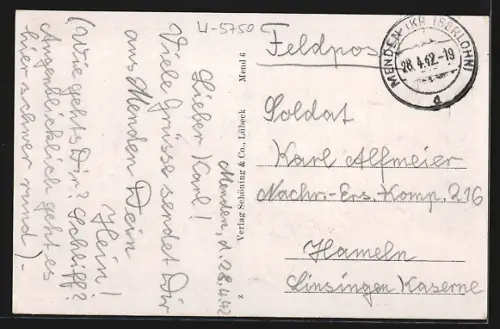 U-5750
Menden, d. 28.4.42
Lieber Karl!
Viele Grüsse sendet Dir
aus Menden Dein
Hein!
(Wie gehts Dir? Schriff?
Augenblicklich geht es
hier schwer rund).
Verlag Schöning & Co., Lübeck Mend 6
z
Feldpost
MENDEN (KR ISERLOHN)
28.4.42-19
d
Soldat
Karl Alfmeier
Nachr.-Ers.-Komp. 216
Hameln
Linsingen Kaserne